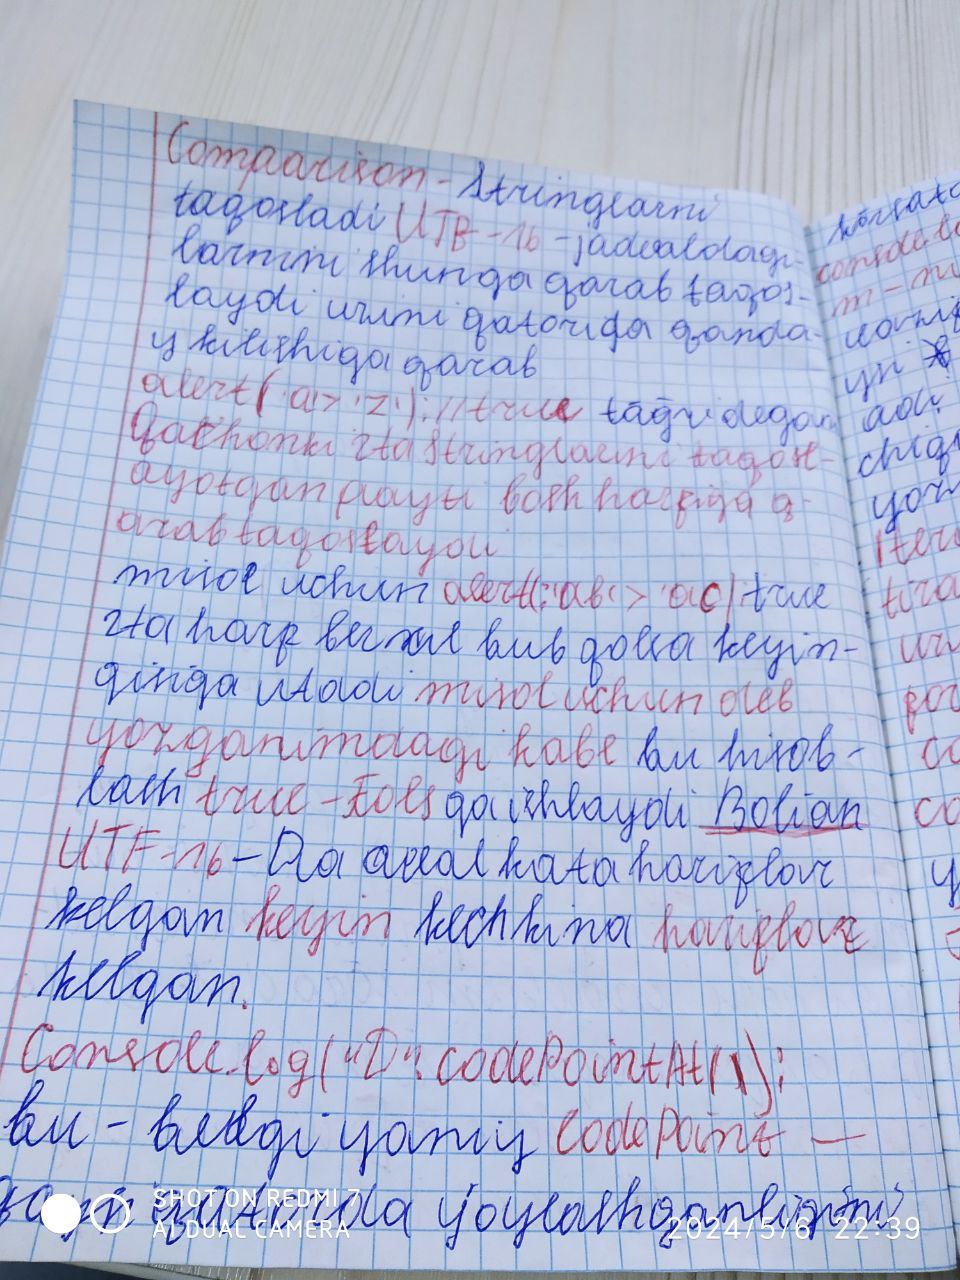 Comparison - Stringlarni
taqosladi UTB-16 - jadvaldagi
larnini shunga qarab taqos-
laydi urnini qatorida qanda-
y kilishiga qarab
alert('a > 'z'); // true tağri degan
Qachonki 2ta stringlarni taqosl-
ayotgan payti bosh harfiga q-
arab taqoslaydi
misol uchun alert(; 'ab' > 'ac) true
2ta harf bir xil bub qolsa keyin-
gisiga utadi misol uchun deb
yozganimdagi kabe bu hisob-
lash true - fols qa ishlaydi Bolian
UTF-16 - Da avval kata hariflar
kelgan keyin kechkina hariflar
kelgan.
Console.log("D".codePointAt(1);
bu - belgi yaniy codePoint —
qaysi qatorda joylashganligini
korsata
console.lo
m - m
yn
adi
chiqa
yoz
Iter
co
co
SHOT ON REDMI 7
AI DUAL CAMERA
2024/5/6 22:39